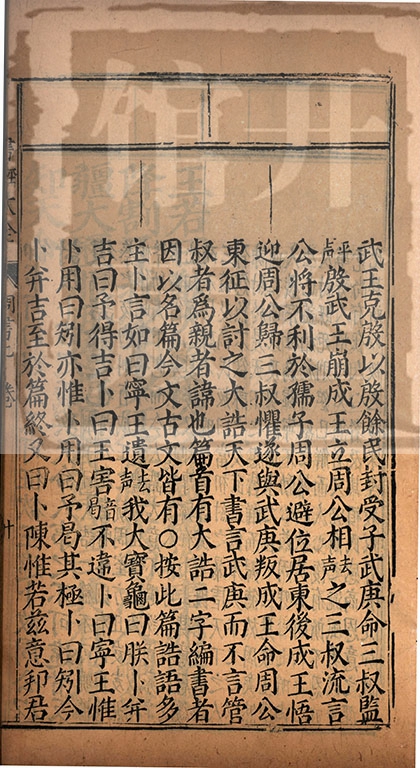 武王克殷以殷餘民封受子武庚命三叔監
平聲殷武王崩成王立周公相去聲之三叔流言
公將不利於孺子周公避位居東後成王悟
迎周公歸三叔懼遂與武庚叛成王命周公
東征以討之大誥天下書言武庚而不言管
叔者為親者諱也篇首有大誥二字編書者
因以名篇今文古文皆有○按此篇誥語多
主卜言如曰寧王遺去聲我大寶龜曰朕卜并
吉曰予得吉卜曰王害音曷不違卜曰寧王惟
卜用曰矧亦惟卜用曰予曷其極卜曰矧今
卜并吉至於篇終又曰卜陳惟若茲意邦君